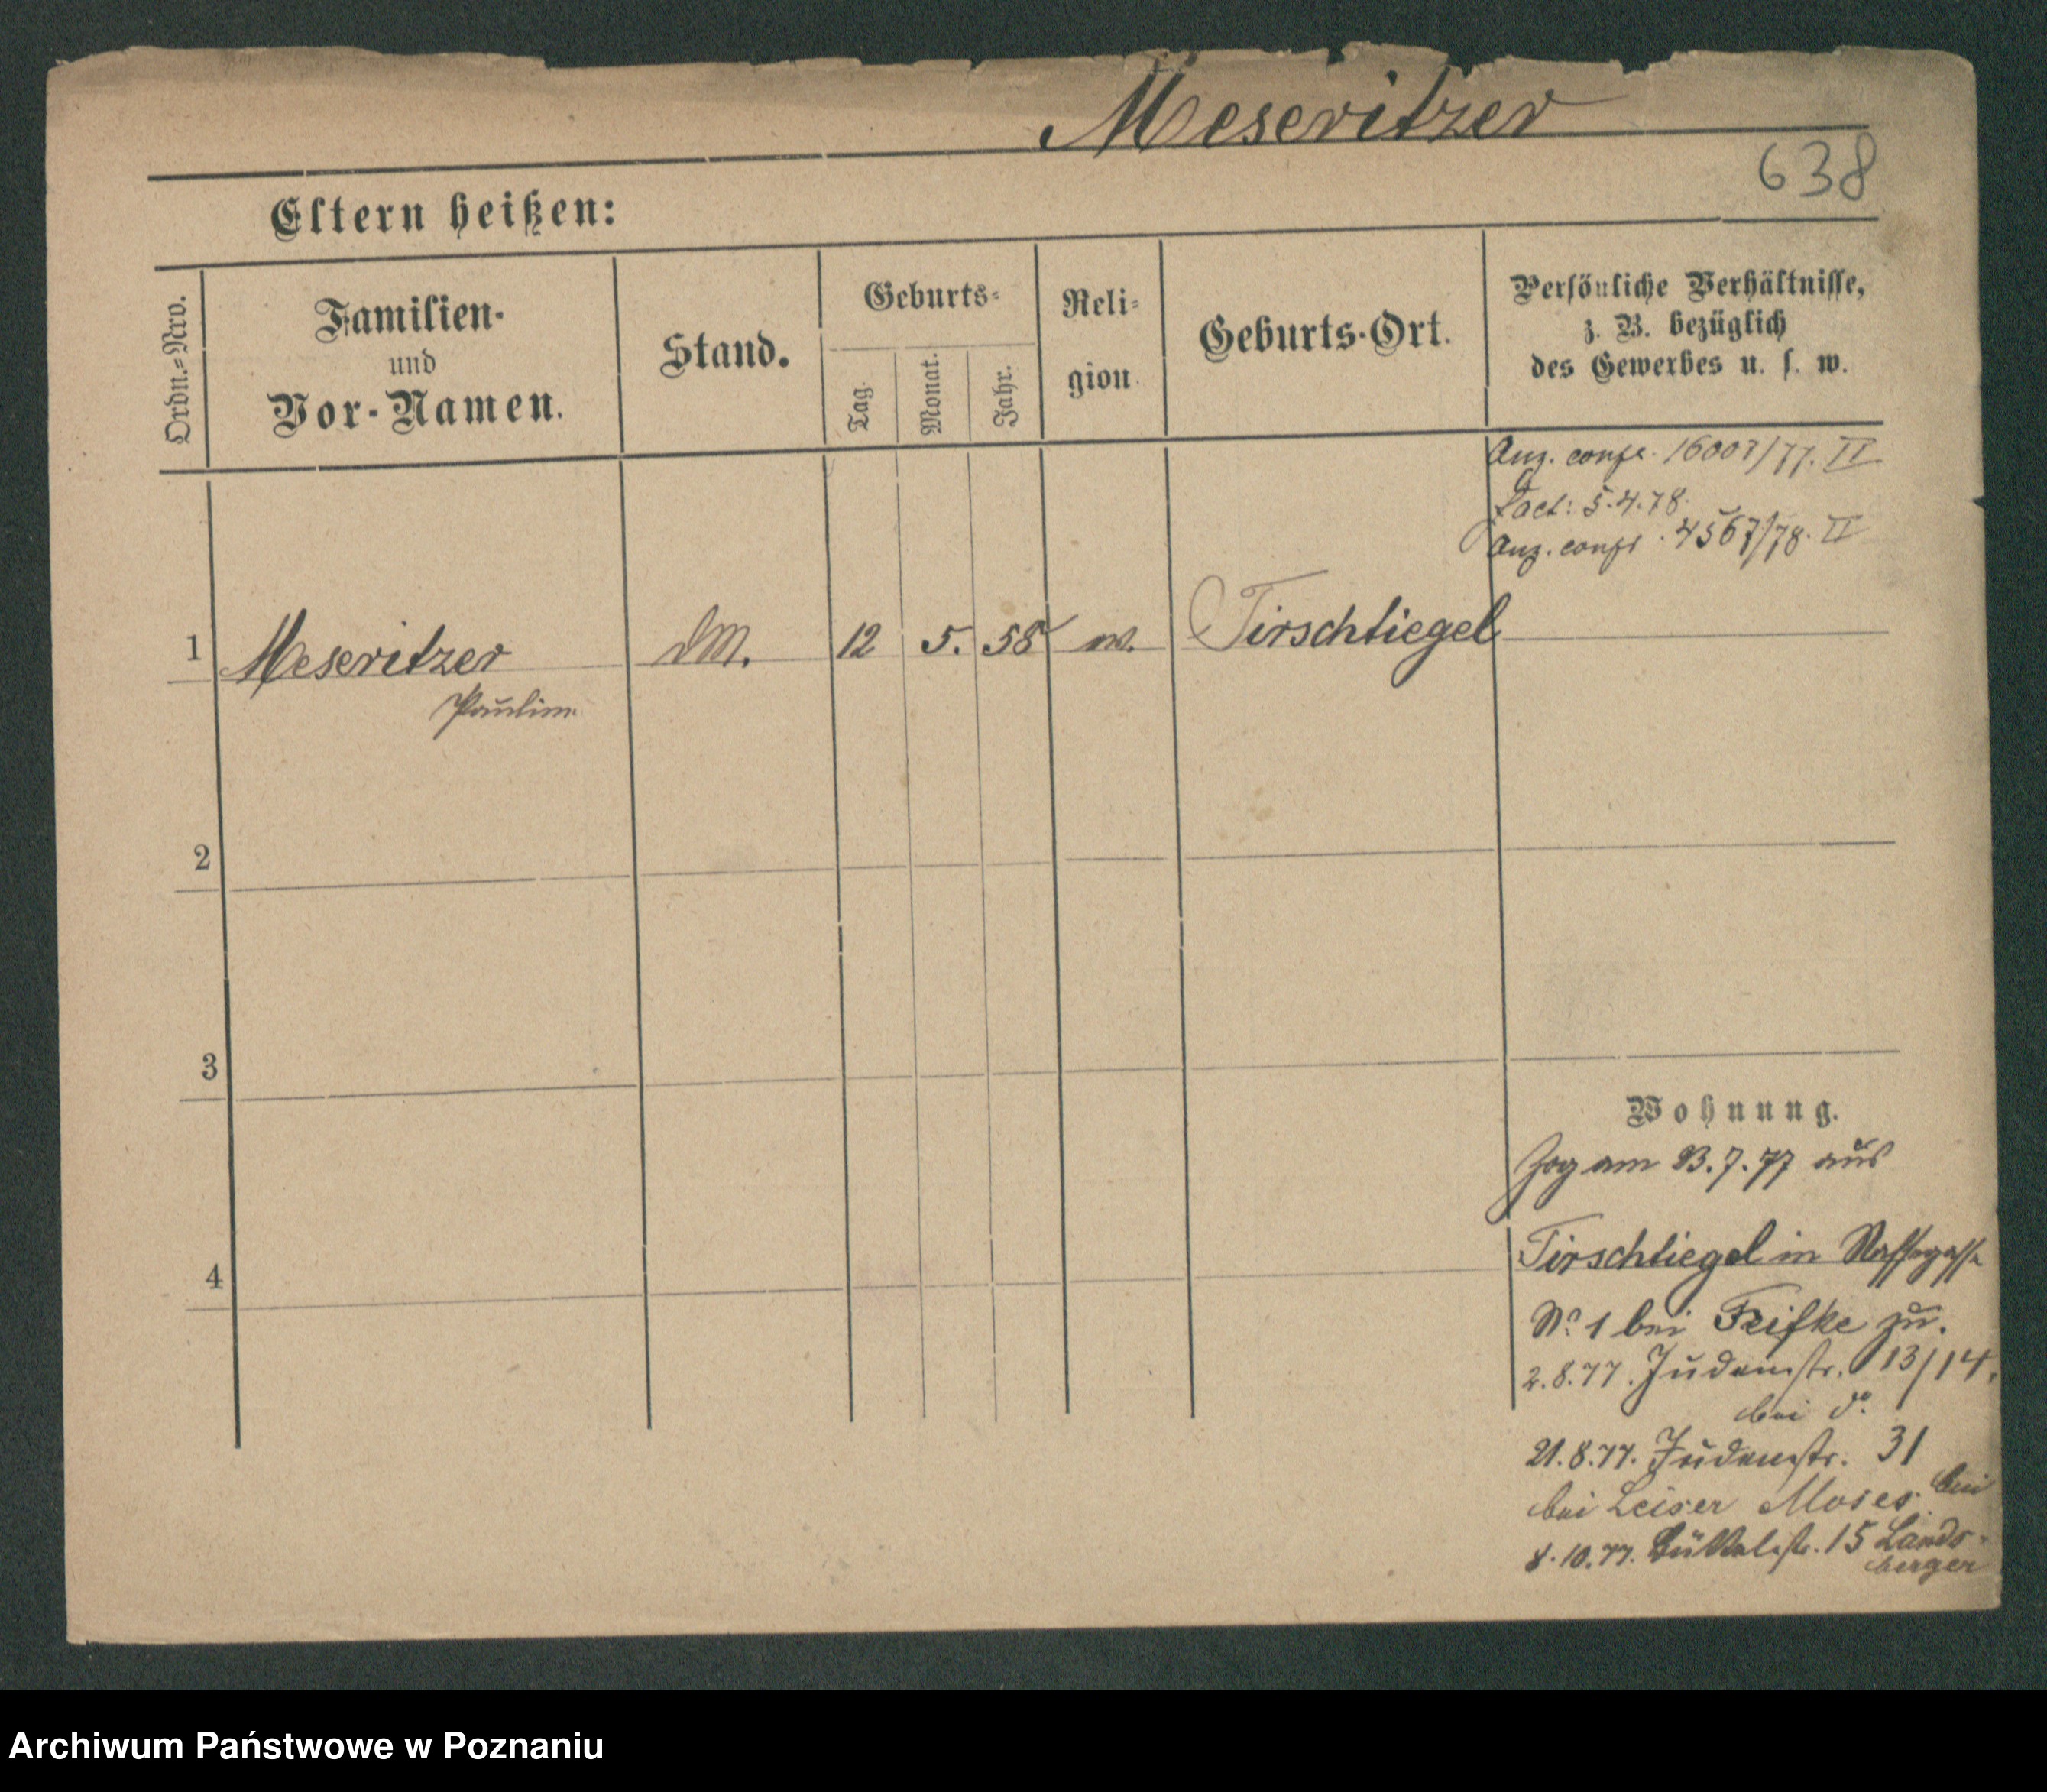 Meseritzer
638
Eltern heißen:
Ordn.=Nro.
Familien-
und
Vor-Namen.
Stand.
Geburts=
Tag.
Monat.
Jahr.
Reli=
gion.
Geburts-Ort.
Persönliche Verhältnisse,
z. B. bezüglich
des Gewerbes u. s. w.
Anz. confr. 16007/77. II
5.4.78.
Anz. confr. 4567/78. II
1 Meseritzer DM. 12 5. 58 m. Tirschtiegel
Pauline
2
3
4
Wohnung.
Zog am 23.7.77 aus
Tirschtiegel in Nassegasse
No 1 bei Feifke zu.
2.8.77. Judenstr. 13/14.
bei do.
21.8.77. Judenstr. 31
bei Leiser Moses.
8.10.77. Büttelstr. 15 bei Lands-
berger
Archiwum Państwowe w Poznaniu